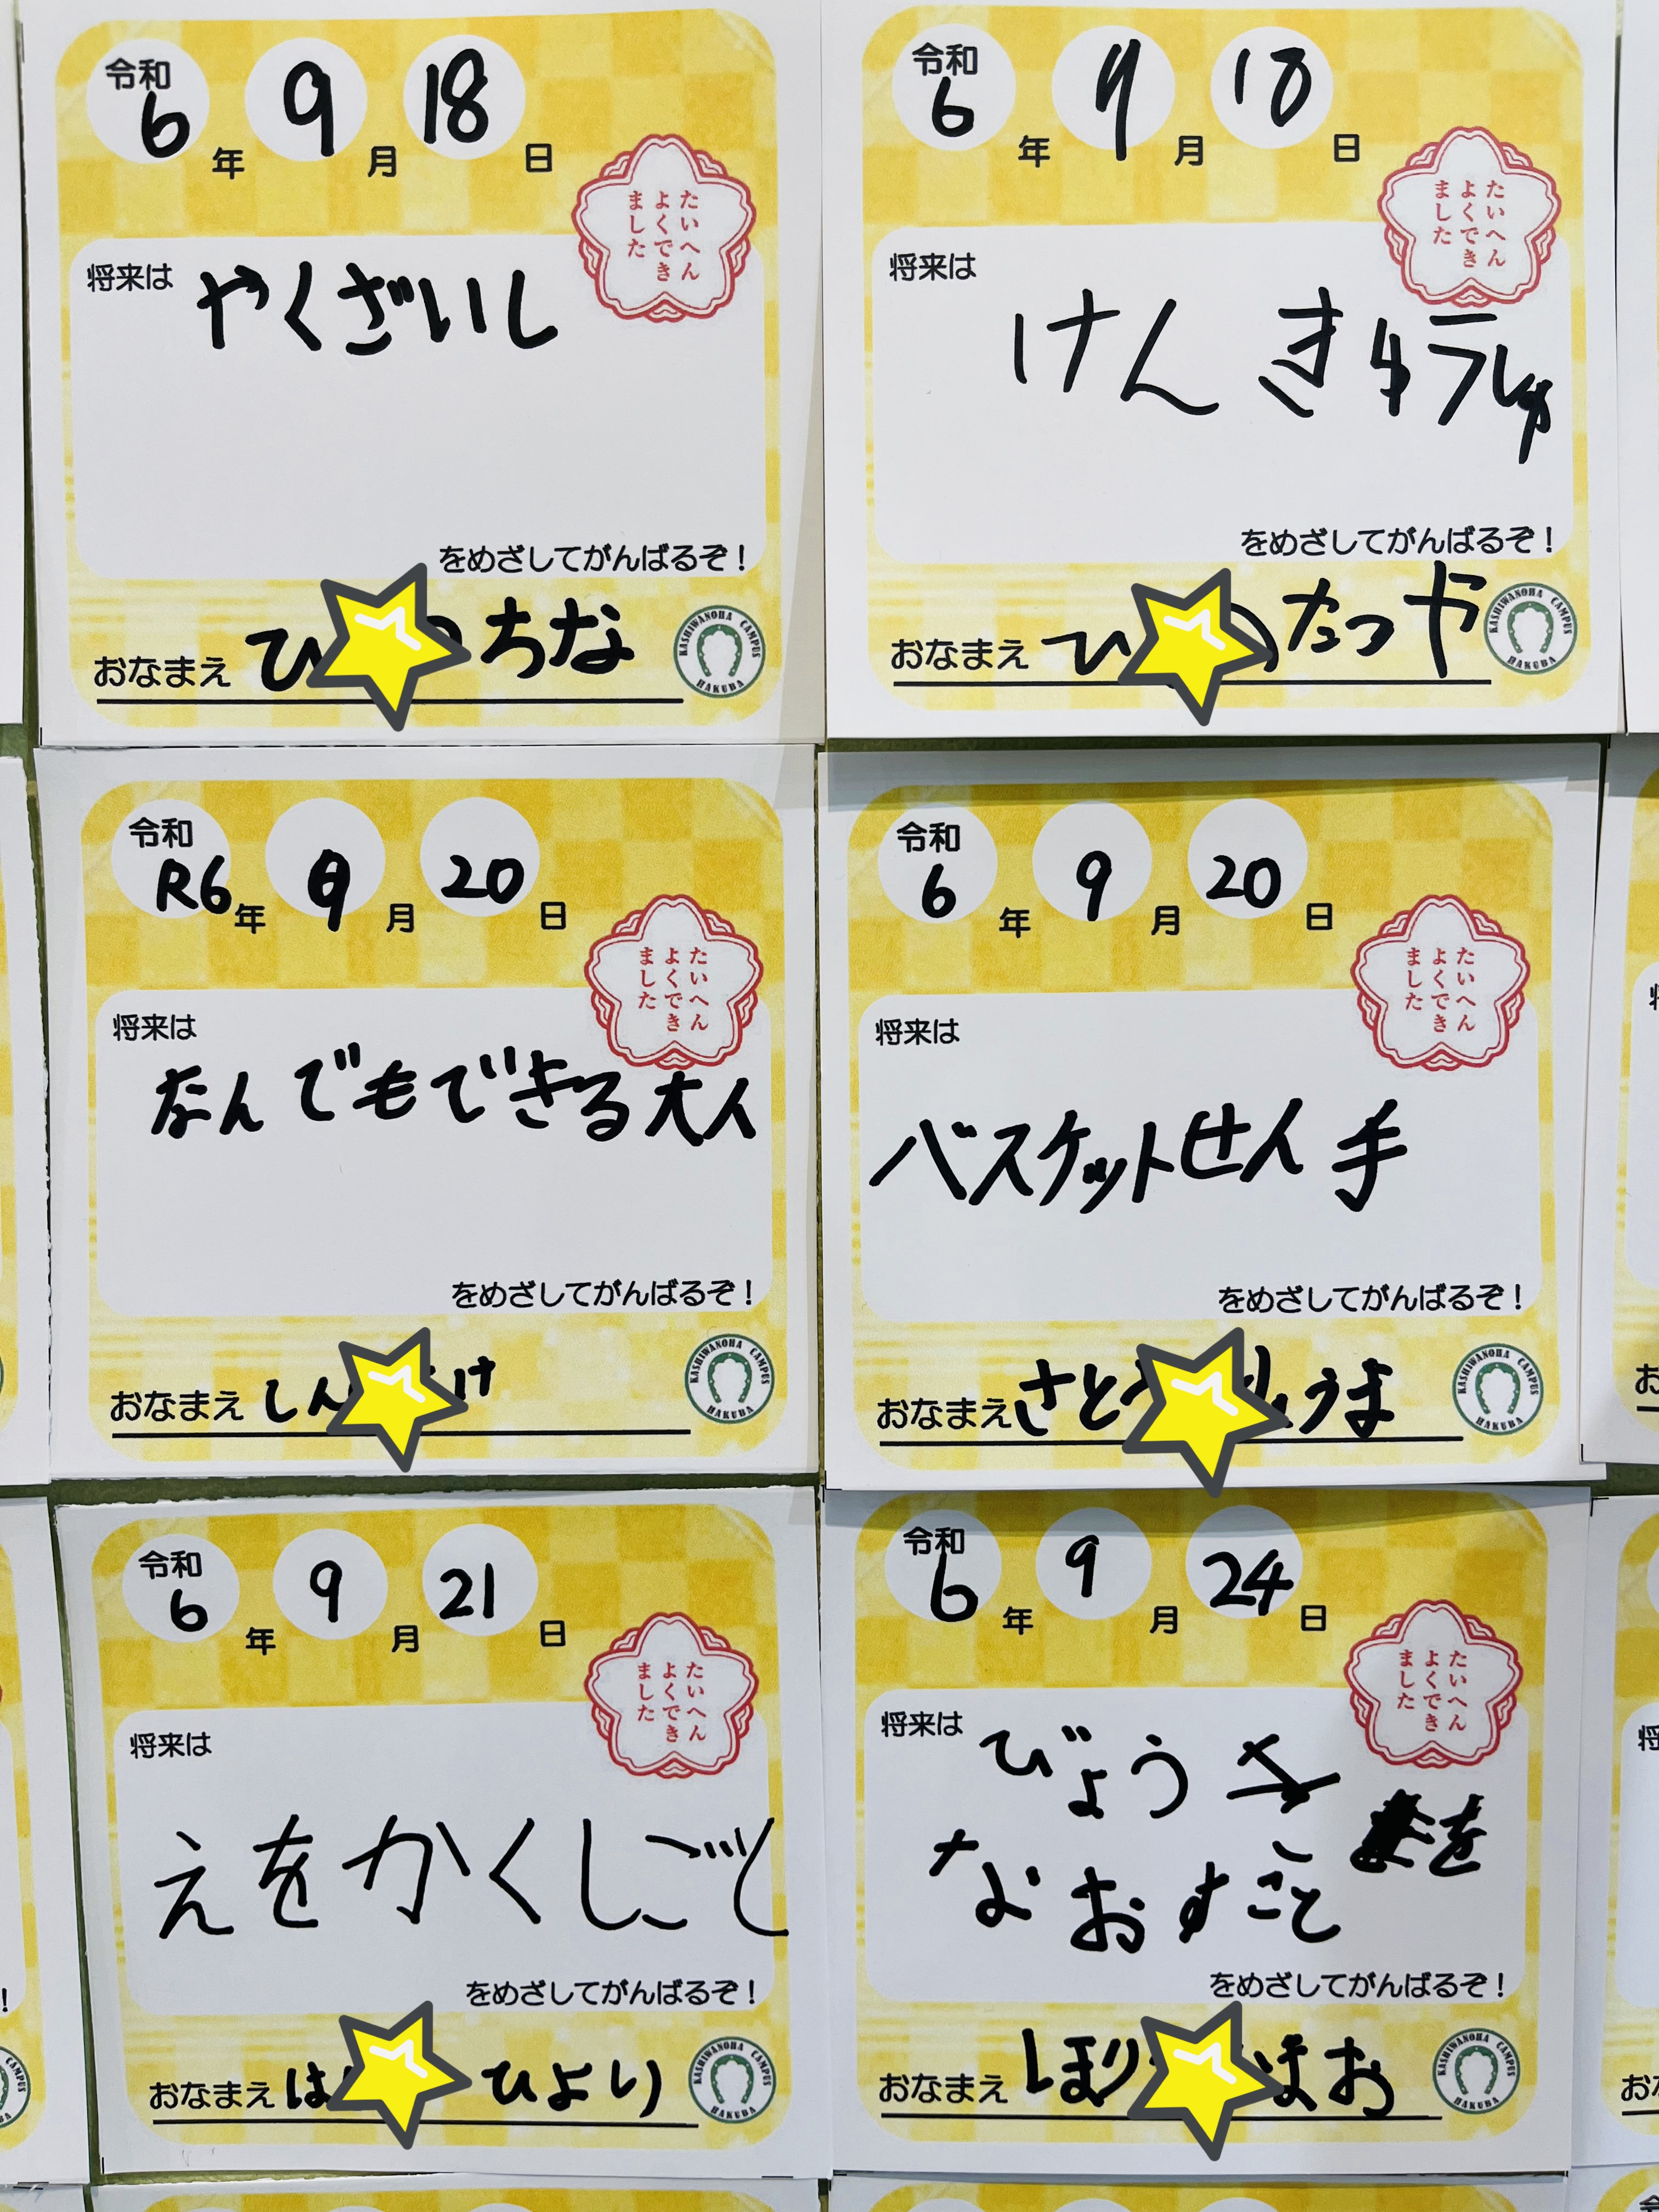 令和
6年 9月 18日
たいへん
よくでき
ました
将来は
やくざいし
をめざしてがんばるぞ！
おなまえ ひ ちな
KASHIWANOHA CAMPUS
HAKUBA
令和
6年 9月 18日
たいへん
よくでき
ました
将来は
けんきゅうしゃ
をめざしてがんばるぞ！
おなまえ ひ の たつや
KASHIWANOHA CAMPUS
HAKUBA
令和
R6年 9月 20日
たいへん
よくでき
ました
将来は
なんでもできる大人
をめざしてがんばるぞ！
おなまえ しん け
KASHIWANOHA CAMPUS
HAKUBA
令和
6年 9月 20日
たいへん
よくでき
ました
将来は
バスケットせん手
をめざしてがんばるぞ！
おなまえ さとう うま
KASHIWANOHA CAMPUS
HAKUBA
令和
6年 9月 21日
たいへん
よくでき
ました
将来は
えをかくしごと
をめざしてがんばるぞ！
おなまえ は ひより
KASHIWANOHA CAMPUS
HAKUBA
令和
6年 9月 24日
たいへん
よくでき
ました
将来は
びょうきを
なおすこと
をめざしてがんばるぞ！
おなまえ ほり まお
KASHIWANOHA CAMPUS
HAKUBA